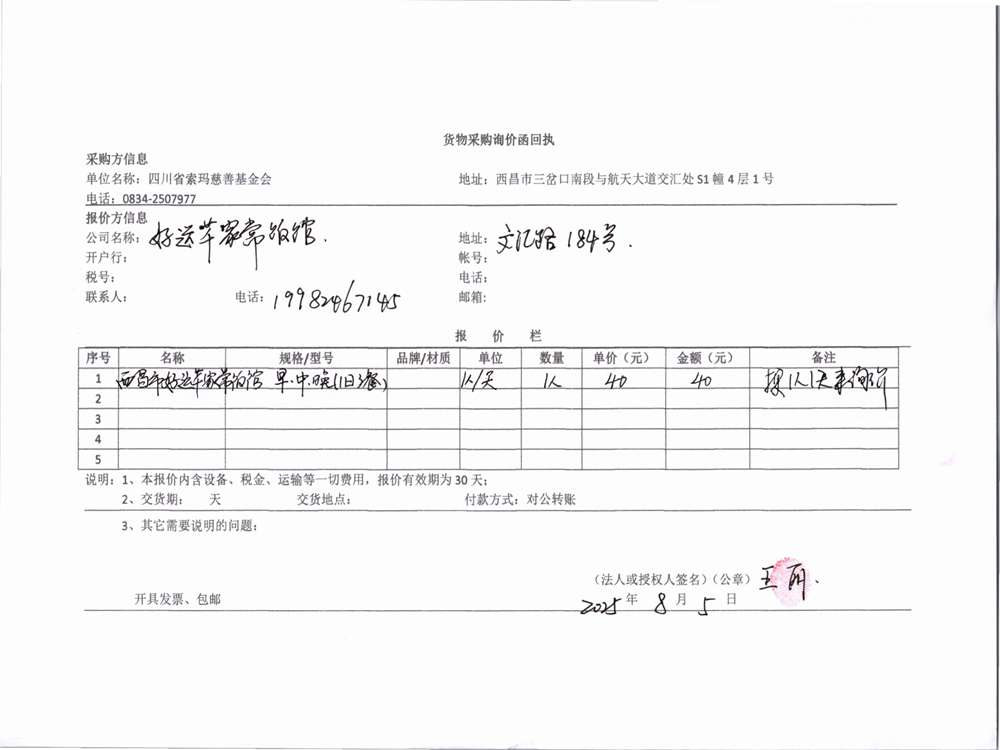 货物采购询价函回执
采购方信息
单位名称：四川省索玛慈善基金会 地址：西昌市三岔口南段与航天大道交汇处 S1 幢 4 层 1 号
电话：0834-2507977
报价方信息
公司名称：好运芊家常饭馆. 地址：文汇路184号.
开户行： 帐号：
税号： 电话：
联系人： 电话：19982467145 邮箱:
报 价 栏
序号 名称 规格/型号 品牌/材质 单位 数量 单价（元） 金额（元） 备注
1 西昌市好运芊家常饭馆 早.中.晚(1日3餐) 人/天 1人 40 40 按1人1天来询价
2
3
4
5
说明：1、本报价内含设备、税金、运输等一切费用，报价有效期为 30 天；
2、交货期： 天 交货地点： 付款方式：对公转账
3、其它需要说明的问题：
（法人或授权人签名）（公章） 王丽.
开具发票、包邮 2025 年 8 月 5 日